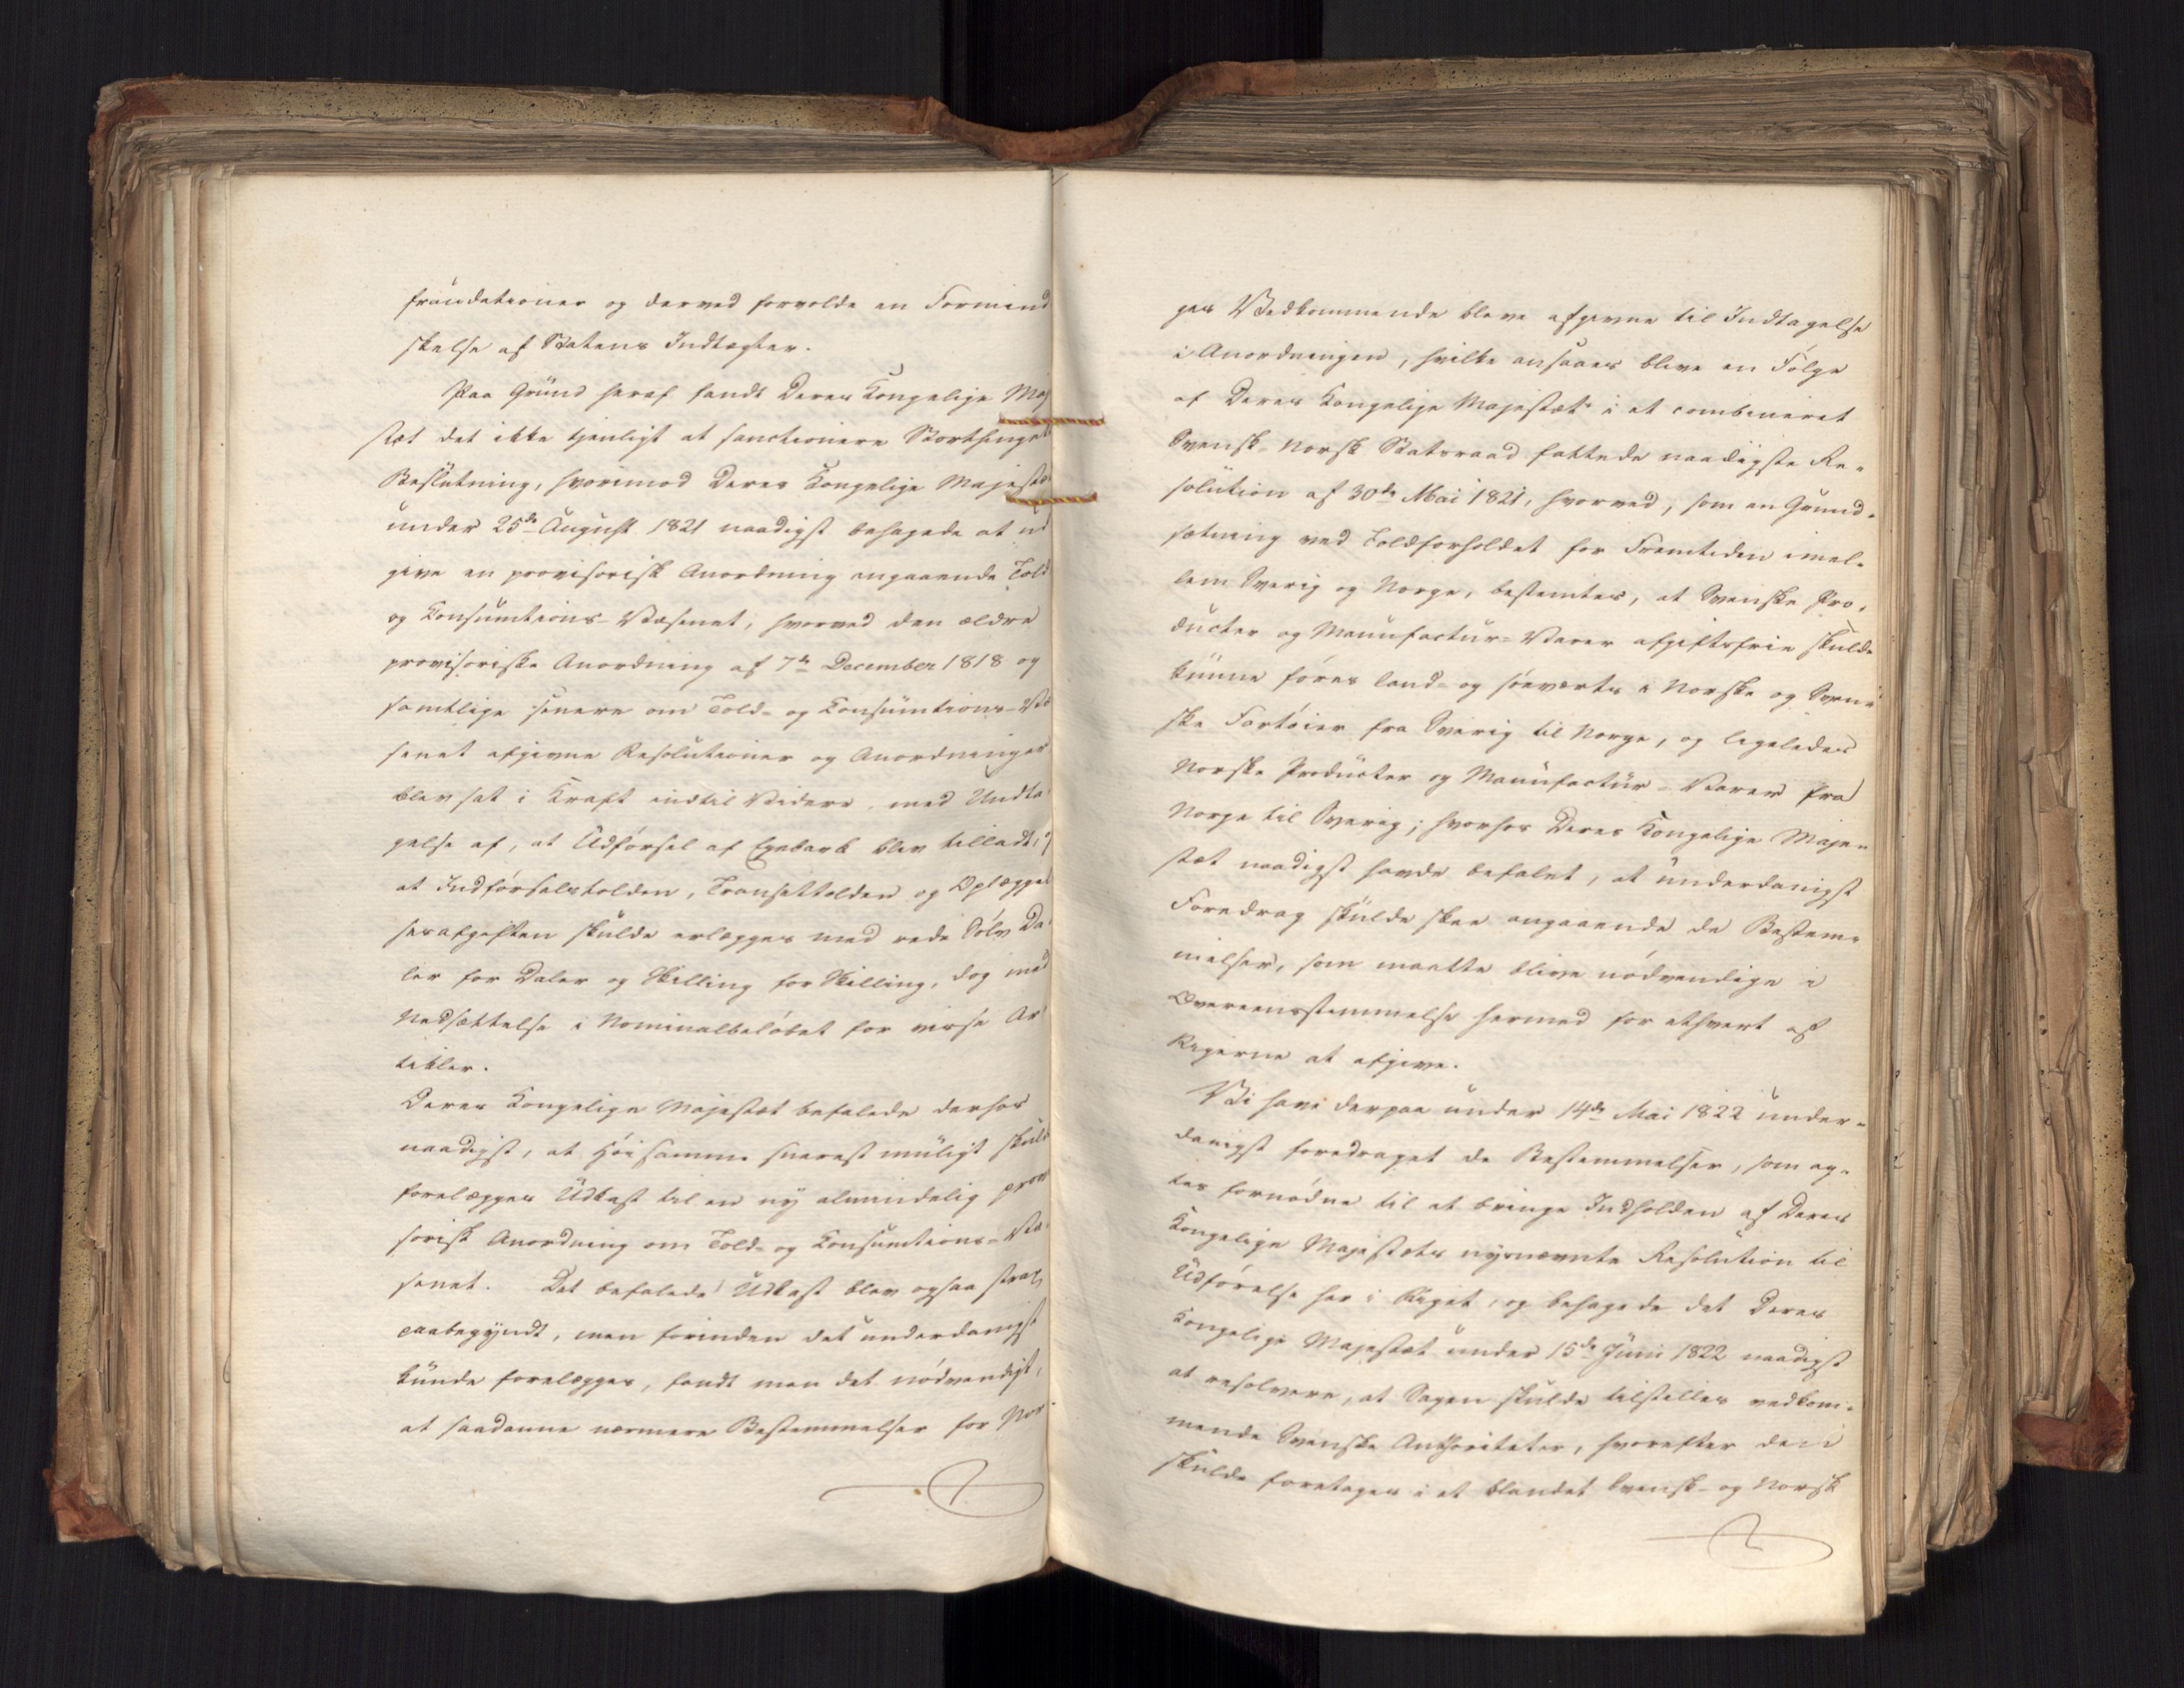 fraudationer og derved forvolde en Formind
skelse af Statens Indtægter.
Paa Grund heraf fandt Deres Kongelige Maj
stæt det ikke tjenligt at sanctionere Storthingets
Beslutning, hvorimod Deres Kongelige Majestæ
under 25de August 1821 naadigst behagede at ud
give en provisorisk Anordning angaaende Told
og Consumtions-Væsenet, hvorved den ældre
provisoriske Anordning af 7de December 1818 og
samtlige senere om Told- og Consumtions-Væ
senet afgivne Resolutioner og Anordninger
blev sat i Kraft indtil Videre, med Undta
gelse af, at Udførsel af Egebark blev tilladt, og
at Indførselstolden, Transittolden og Oplægge
serafgiften skulde erlægges med rede Sølv Da
ler for Daler og Skilling for Skilling, dog med
Nedsættelse i Nominalbeløbet for visse Ar
tikler.
Deres Kongelige Majestæt befalede derhos
naadigst, at Høisamme snarest muligt skuld
forelægges Udkast til en ny almindelig prov
sorisk Anordning om Told- og Consumtions-Væ
senet. Det befalede Udkast blev ogsaa strax
paabegyndt, men forinden det underdanigst
kunde forelægges, fandt man det nødvendigt,
at saadanne nærmere Bestemmelser for Nor
ges Vedkommende bleve afgivne til Indtagelse
i Anordningen, hvilke ansaaes blive en Følge
af Deres Kongelige Majestæts i et combineret
Svensk-Norsk Statsraad fattede naadigste Re-
solution af 30de Mai 1821, hvorved, som en Grund-
sætning ved Toldforholdet for Fremtiden imel-
lem Sverig og Norge, bestemtes, at Svenske Pro-
ducter og Manufactur-Varer afgiftsfrie skulde
kunne føres land- og søeværts i Norske og Sven-
ske Fartøier fra Sverig til Norge, og ligeledes
Norske Producter og Manufactur-Varer fra
Norge til Sverig; hvorhos Deres Kongelige Maje-
stæt naadigst havde befalet, at underdanigst
Foredrag skulde skee angaaende de Bestem-
melser, som maatte blive nødvendige i
Overeensstemmelse hermed for ethvert af
Rigerne at afgive.
Vi have derpaa under 14de Mai 1822 under-
danigst foredraget de Bestemmelser, som ag-
tes fornødne til at bringe Indholden af Deres
Kongelige Majestæts nysnævnte Resolution til
Udførelse her i Riget, og behagede det Deres
Kongelige Majestæt under 15de Juni 1822 naadigst
at resolvere, at Sagen skulde tilstilles vedkom-
mende Svenske Authoriteter, hvorefter den
skulde foretages i et blandet Svensk- og Norsk